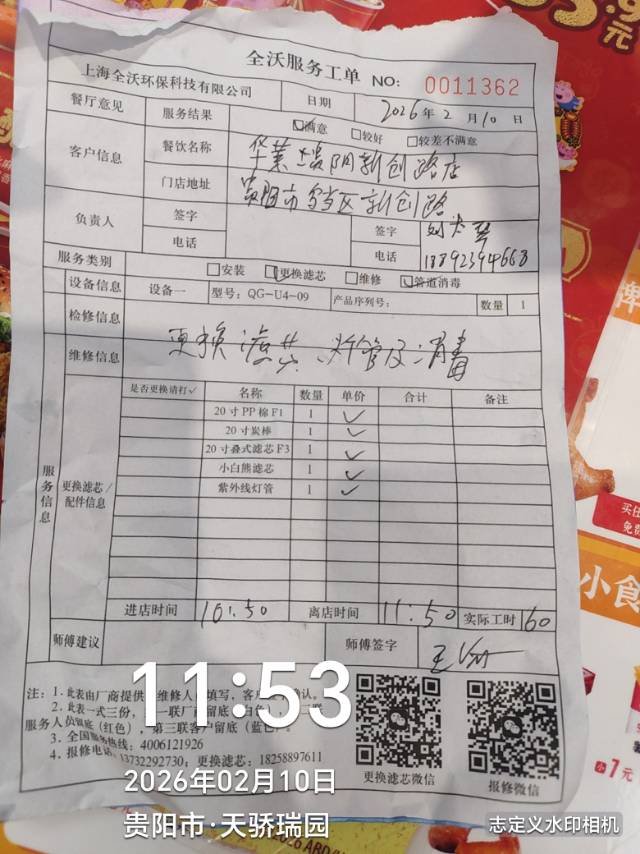 全沃服务工单 NO: 0011362
上海全沃环保科技有限公司 日期 2026年2月10日
餐厅意见 服务结果 ☑满意 □较好 □较差不满意
客户信息 餐饮名称 华莱士贵阳新创路店
门店地址 贵阳市 区新创路
负责人 签字 签字
电话 电话 18892394668
服务类别 □安装 ☑更换滤芯 □维修 ☑管道消毒
设备信息 设备一 型号：QG-U4-09 产品序列号： 数量 1
检修信息
维修信息 更换滤芯、灯管及消毒
是否更换请打✓ 名称 数量 单价 合计 备注
20寸PP棉F1 1 ✓
20寸炭棒 1 ✓
20寸叠式滤芯F3 1 ✓
小白熊滤芯 1 ✓
紫外线灯管 1 ✓
服务信息
更换滤芯/配件信息
进店时间 10:50 离店时间 11:50 实际工时 60
师傅建议 师傅签字
注：1.此表由厂商提供 维修人 填写，客户 确认。
2.此表一式三份， 一联厂商留底（白色）， 二联
服务人员留底（红色），第三联客户留底（蓝色）。
3.全国服务热线：4006121926
4.报修电话：13732292730；更换滤芯：18258897611
更换滤芯微信 报修微信
11:53
2026年02月10日
贵阳市·天骄瑞园
志定义水印相机
元
买任
免费
小食
1元